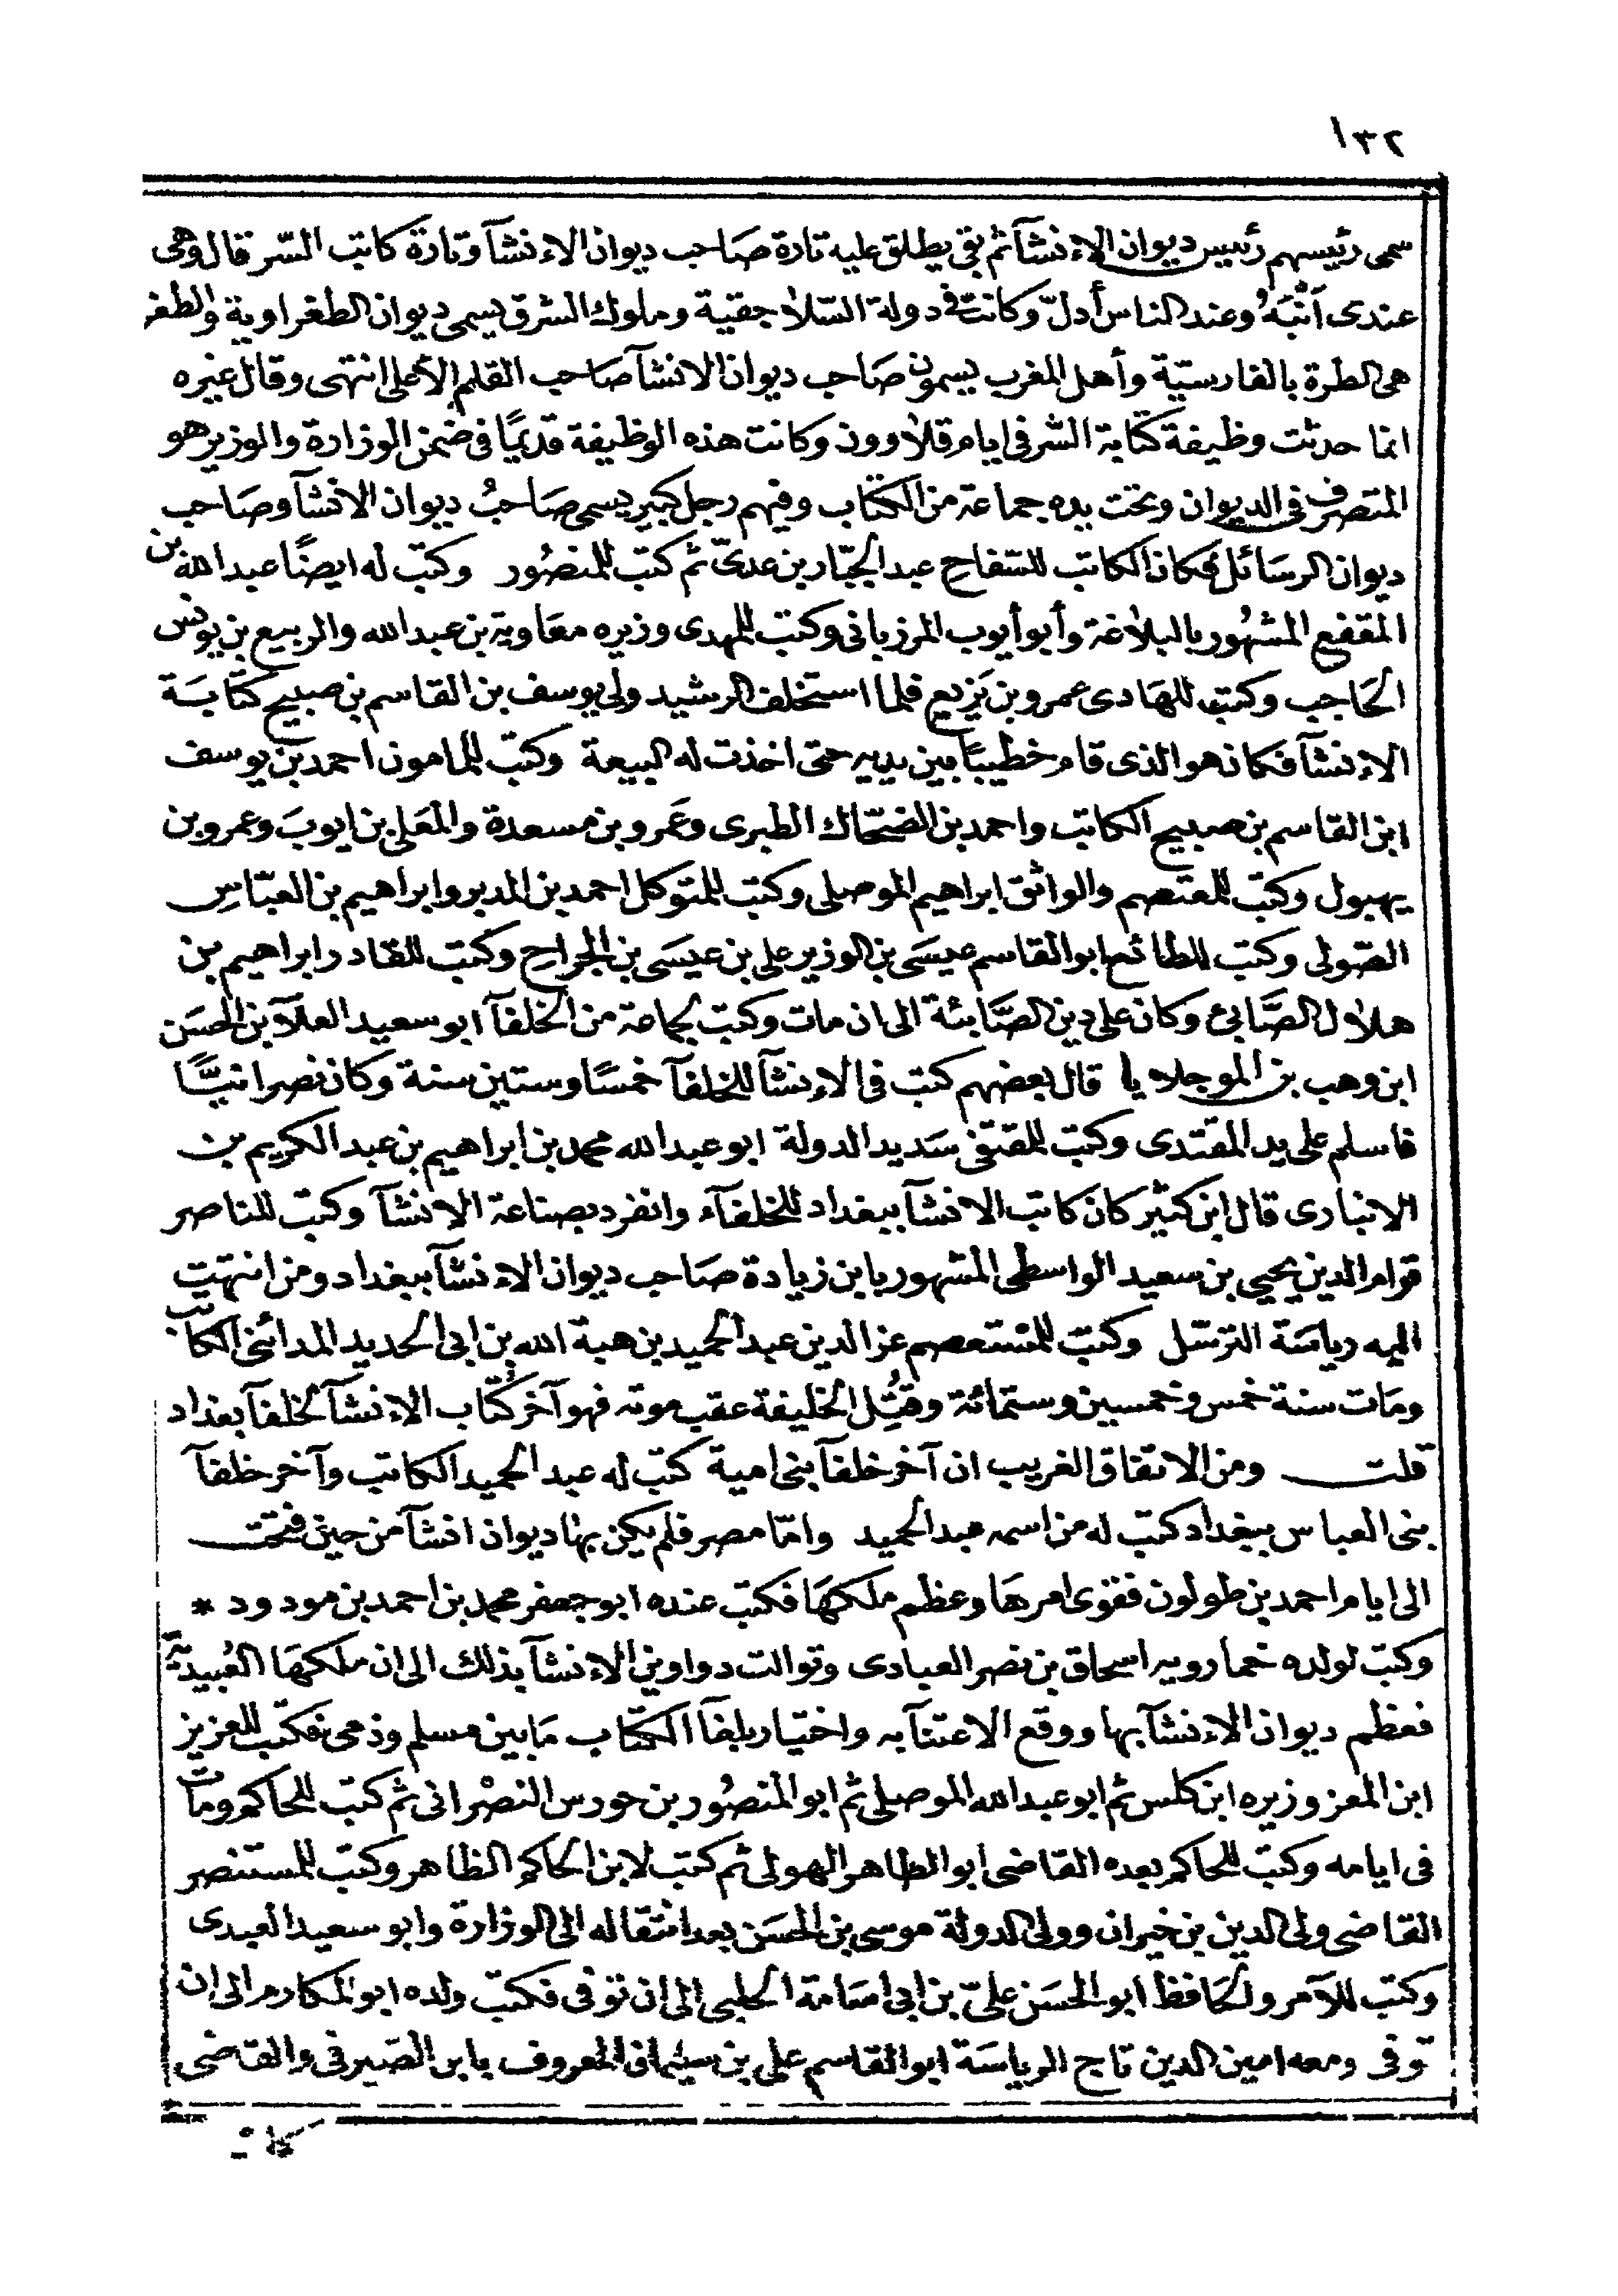 ١٣٢
سمى رئيسهم رئيس ديوان الاءنشآ ثم بقى يطلق عليه تارة صَاحب ديوان الاءنشآ وتارة كاتب السّر قال وهى
عندى أنبَهُ وعند الناس أدلّ وكانت فى دولة السّلاجقية وملوك الشرق يسمى ديوان الطغراوية والطغر
هى الطرة بالفارسيّة وأهل المغرب يسمون صَاحب ديوان الانشآ صَاحب القلم الأعلى انتهى وقال غيره
انما حدثت وظيفة كتَابة السّر فى ايام قلاوون وكانت هذه الوظيفة قديمًا فى ضمن الوزارة والوزير هو
المتصرف فى الديوان وتحت يده جماعة من الكتّاب وفيهم رجل كبير يسمى صَاحبُ ديوان الانشآ وصَاحب
ديوان الرسَائل فكان الكاتب للسّفاحِ عبد الجبّار بن عدىّ ثم كتب للمنصُور وكتب له ايضًا عبد الله بن
المقفع المشهُور بالبلاغة وأبو أيوب المرزبانى وكتب للمهدى وزيره معَاوية بن عبد الله والربيع بن يونس
الحَاجب وكتب للهَادى عمرو بن بَزيع فلما استخلف الرشيد ولى يوسف بن القاسم بن صبيح كتَابَة
الاءنشآ فكان هو الذى قام خطيبًا بين يديه حتى اخذت له البيعة وكتب للمامون احمد بن يوسف
ابن القاسم بن صبيح الكاتب واحمد بن الضحّاك الطبرى وعَمرو بن مسعدة والمعَلى بن ايوبَ وعمرو بن
يهبول وكتب للمعتصم والواثق ابراهيم الموصلى وكتب للمتوكل احمد بن المدبر وابراهيم بن العبّاس
الصّولى وكتب للطائع ابو القاسم عيسَى بن الوزير على بن عيسَى بن الجراح وكتب للقادر ابراهيم بن
هلال الصَّابئ وكان على دين الصَّابئة الى ان مات وكتب لجماعة من الخلفآ ابو سعيد العلآ بن الحسَن
ابن وهب بن الموجلايا قال بعضهم كتب فى الاءنشآ للخلفآ خمسًا وستين سنة وكان نصرانيًّا
فاسلم على يد المقتدى وكتب للمقتفى سَديد الدولة ابو عبد الله محمد بن ابراهيم بن عبد الكريم بن
الانبارى قال ابن كثير كان كاتب الانشآ ببغداد للخلفآء وانفرد بصناعة الانشآ وكتب للناصر
قوام الدين يحيى بن سعيد الواسطى المشهور بابن زيادة صَاحب ديوان الاءنشآ ببغداد ومن انتهت
اليه رياسَة الترسّل وكتب للمستعصم عز الدين عبد الحميد بن هبة الله بن ابى الحديد المدائنى الكاتب
ومَات سنة خمس وخمسين وستمائة وقُتِل الخليفة عقب موته فهو آخر كتّاب الاءنشآ لخلفآ بغداد
قلت ومن الاتفاق الغريب ان آخر خلفآ بنى امية كتب له عبد الحميد الكاتب وآخر خلفآ
بنى العباس ببغداد كتب له من اسمه عبد الحميد وامّا مصر فلم يكن بها ديوان انشآ من حين فتحت
الى ايام احمد بن طولون فقوى امرهَا وعظم ملكهَا فكتب عنده ابو جعفر محمد بن احمد بن مودود *
وكتب لولده خمارويه اسحاق بن نصر العبادى وتوالت دواوين الاءنشآ بذلك الى ان ملكهَا العُبيديّة
فعظم ديوان الاءنشآ بها ووقع الاعتنآ به واختيار بلغآ الكتّاب مَا بين مسلم وذمى فكتب للعزيز
ابن المعز وزيره ابن كلس ثم ابو عبد الله الموصلى ثم ابو المنصُور بن حورس النصْرانى ثم كتب للحاكم ومات
فى ايامه وكتب للحاكم بعده القاضى ابو الطاهر الهولى ثم كتب لابن الحاكم الظاهر وكتب للمستنصر
القاضى ولى الدين بن خيران وولى الدولة موسى بن الحسَن بعد انتقاله الى الوزارة وابو سعيد العبدى
وكتب للآمر والحَافظ ابو الحسَن علىّ بن ابى اسَامة الحلبى الى ان توفى فكتب ولده ابو المكارم الى ان
توفى ومعه امين الدين تاج الرياسَة ابو القاسم على بن سيلمان المعروف بابن الصّيرفى والقاضى
كا